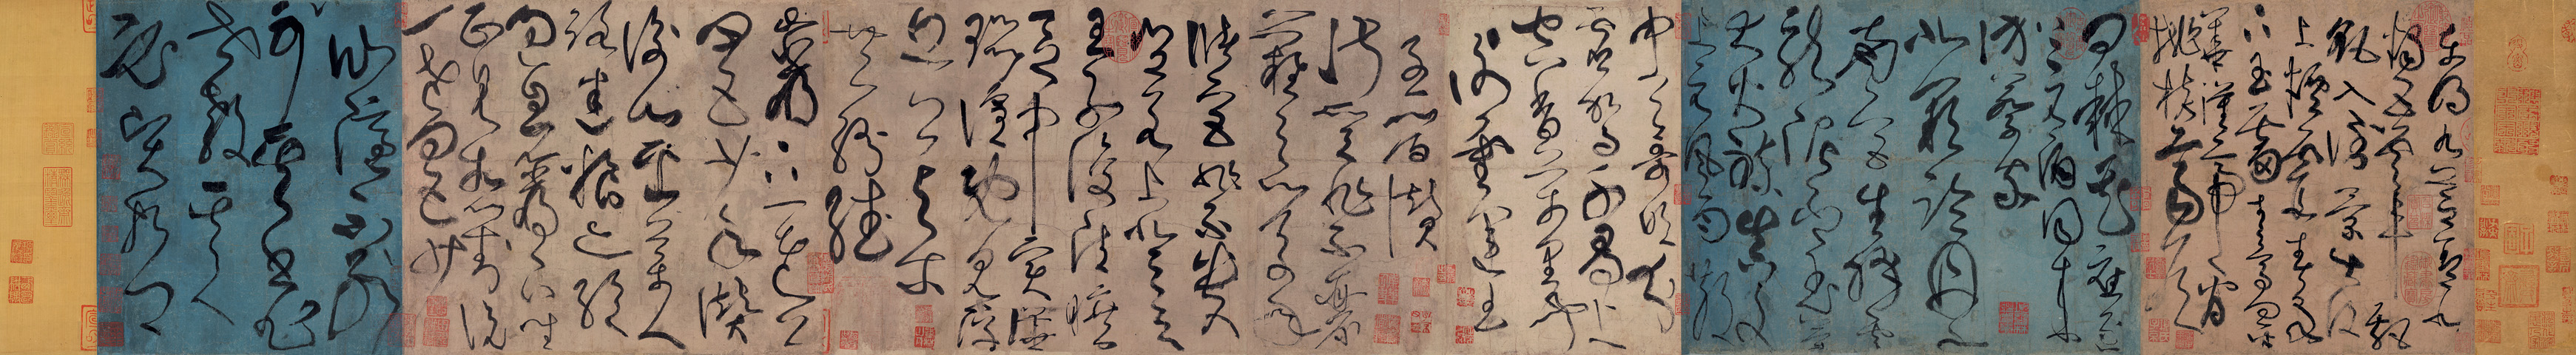 東明九芝盖北
燭五雲車飄
飖入倒景出没
上煙霞春泉
下玉霤青鳥向金
華漢帝看
桃核齊侯
問棘花應逐
上元酒同来
訪蔡家
北闕臨丹水
南宫生絳雲
龍泥印玉簡
大火煉真文
上元風雨散
中天哥吹分
虚駕千尋上
空香萬里聞
謝靈運王
子晉讚
淑質非不麗
難之以萬年
儲宫非不貴
豈若上登天
王子復清曠
區中實譁
囂喧既見浮
丘公與尔
共紛繙
巖下一老公
四五少年讚
衡山采藥人
路迷粮亦絶
過息巖下坐
正見相對説
一老四五少
仙隱不
可别其書非
世教其人
必賢哲